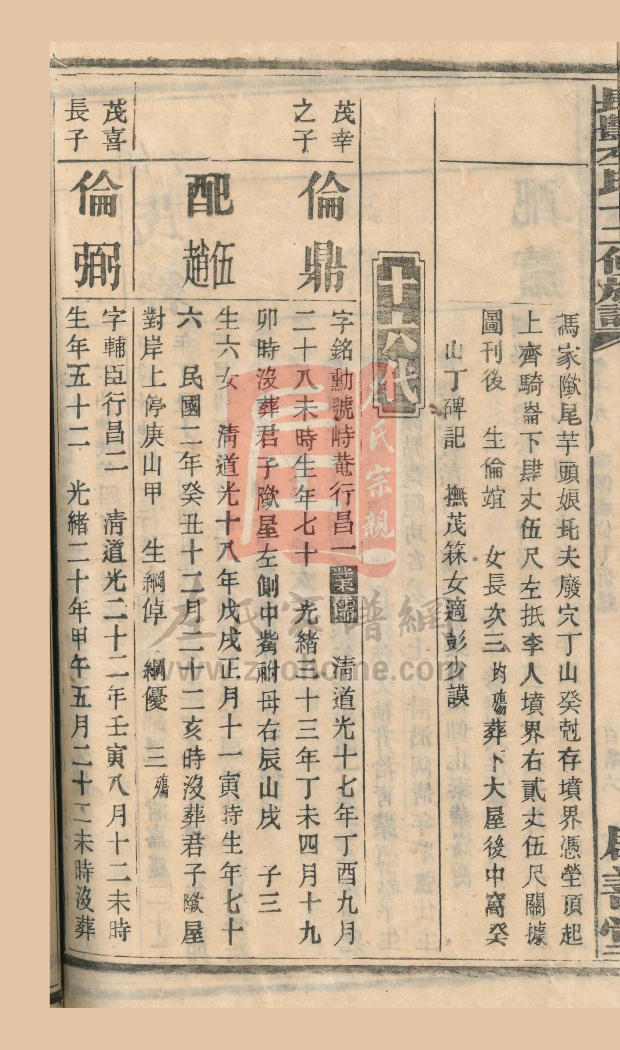 馮家隞尾芋頭娘坉夫廢穴丁山癸尅存墳界憑塋頂起
上齊騎崙下肆丈伍尺左抵李人墳界右貳丈伍尺關據
圖刊後 生倫竩 女長次三均殤葬下大屋後中窩癸
山丁碑記 撫茂箖女適彭少謨
十六氏
茂幸之子
倫鼎
字銘勳號峙菴行昌一業儒 清道光十七年丁酉九月
二十八未時生年七十一光緒三十三年丁未四月十九
卯時沒葬君子隞屋左側中嘴祔母右辰山戌 子三
配伍趙
生六女 清道光十八年戊戌正月十一寅時生年七十
六 民國二年癸丑十二月二十二亥時沒葬君子隞屋
對岸上停庚山甲 生綱倬 綱優 三殤
茂喜長子
倫弼
字輔臣行昌二 清道光二十二年壬寅八月十二未時
生年五十二 光緒二十年甲午五月二十二未時沒葬
左氏宗親
左氏家譜網
www.zuohome.com